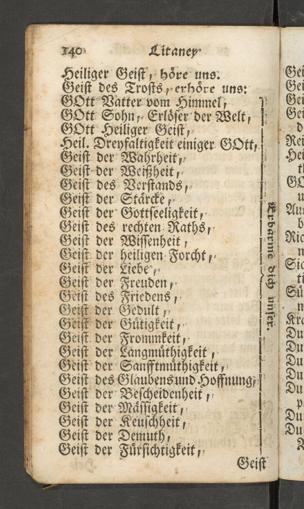 140 Litaney
Heiliger Geist, höre uns.
Geist des Trosts, erhöre uns:
GOtt Vatter vom Himmel,
GOtt Sohn, Erlöser der Welt,
GOtt Heiliger Geist,
Heil. Dreyfaltigkeit einiger GOtt,
Geist der Wahrheit,
Geist der Weißheit,
Geist des Verstands,
Geist der Stärcke,
Geist der Gottseeligkeit,
Geist des rechten Raths,
Geist der Wissenheit,
Geist der heiligen Forcht,
Geist der Liebe,
Geist der Freuden,
Geist des Friedens,
Geist der Gedult,
Geist der Gütigkeit,
Geist der Frommkeit,
Geist der Langmüthigkeit,
Geist der Sanfftmüthigkeit,
Geist des Glaubens und Hoffnung,
Geist der Bescheidenheit,
Geist der Mässigkeit,
Geist der Keuschheit,
Geist der Demuth,
Geist der Fürsichtigkeit,
Erbarme dich unser.
Geist